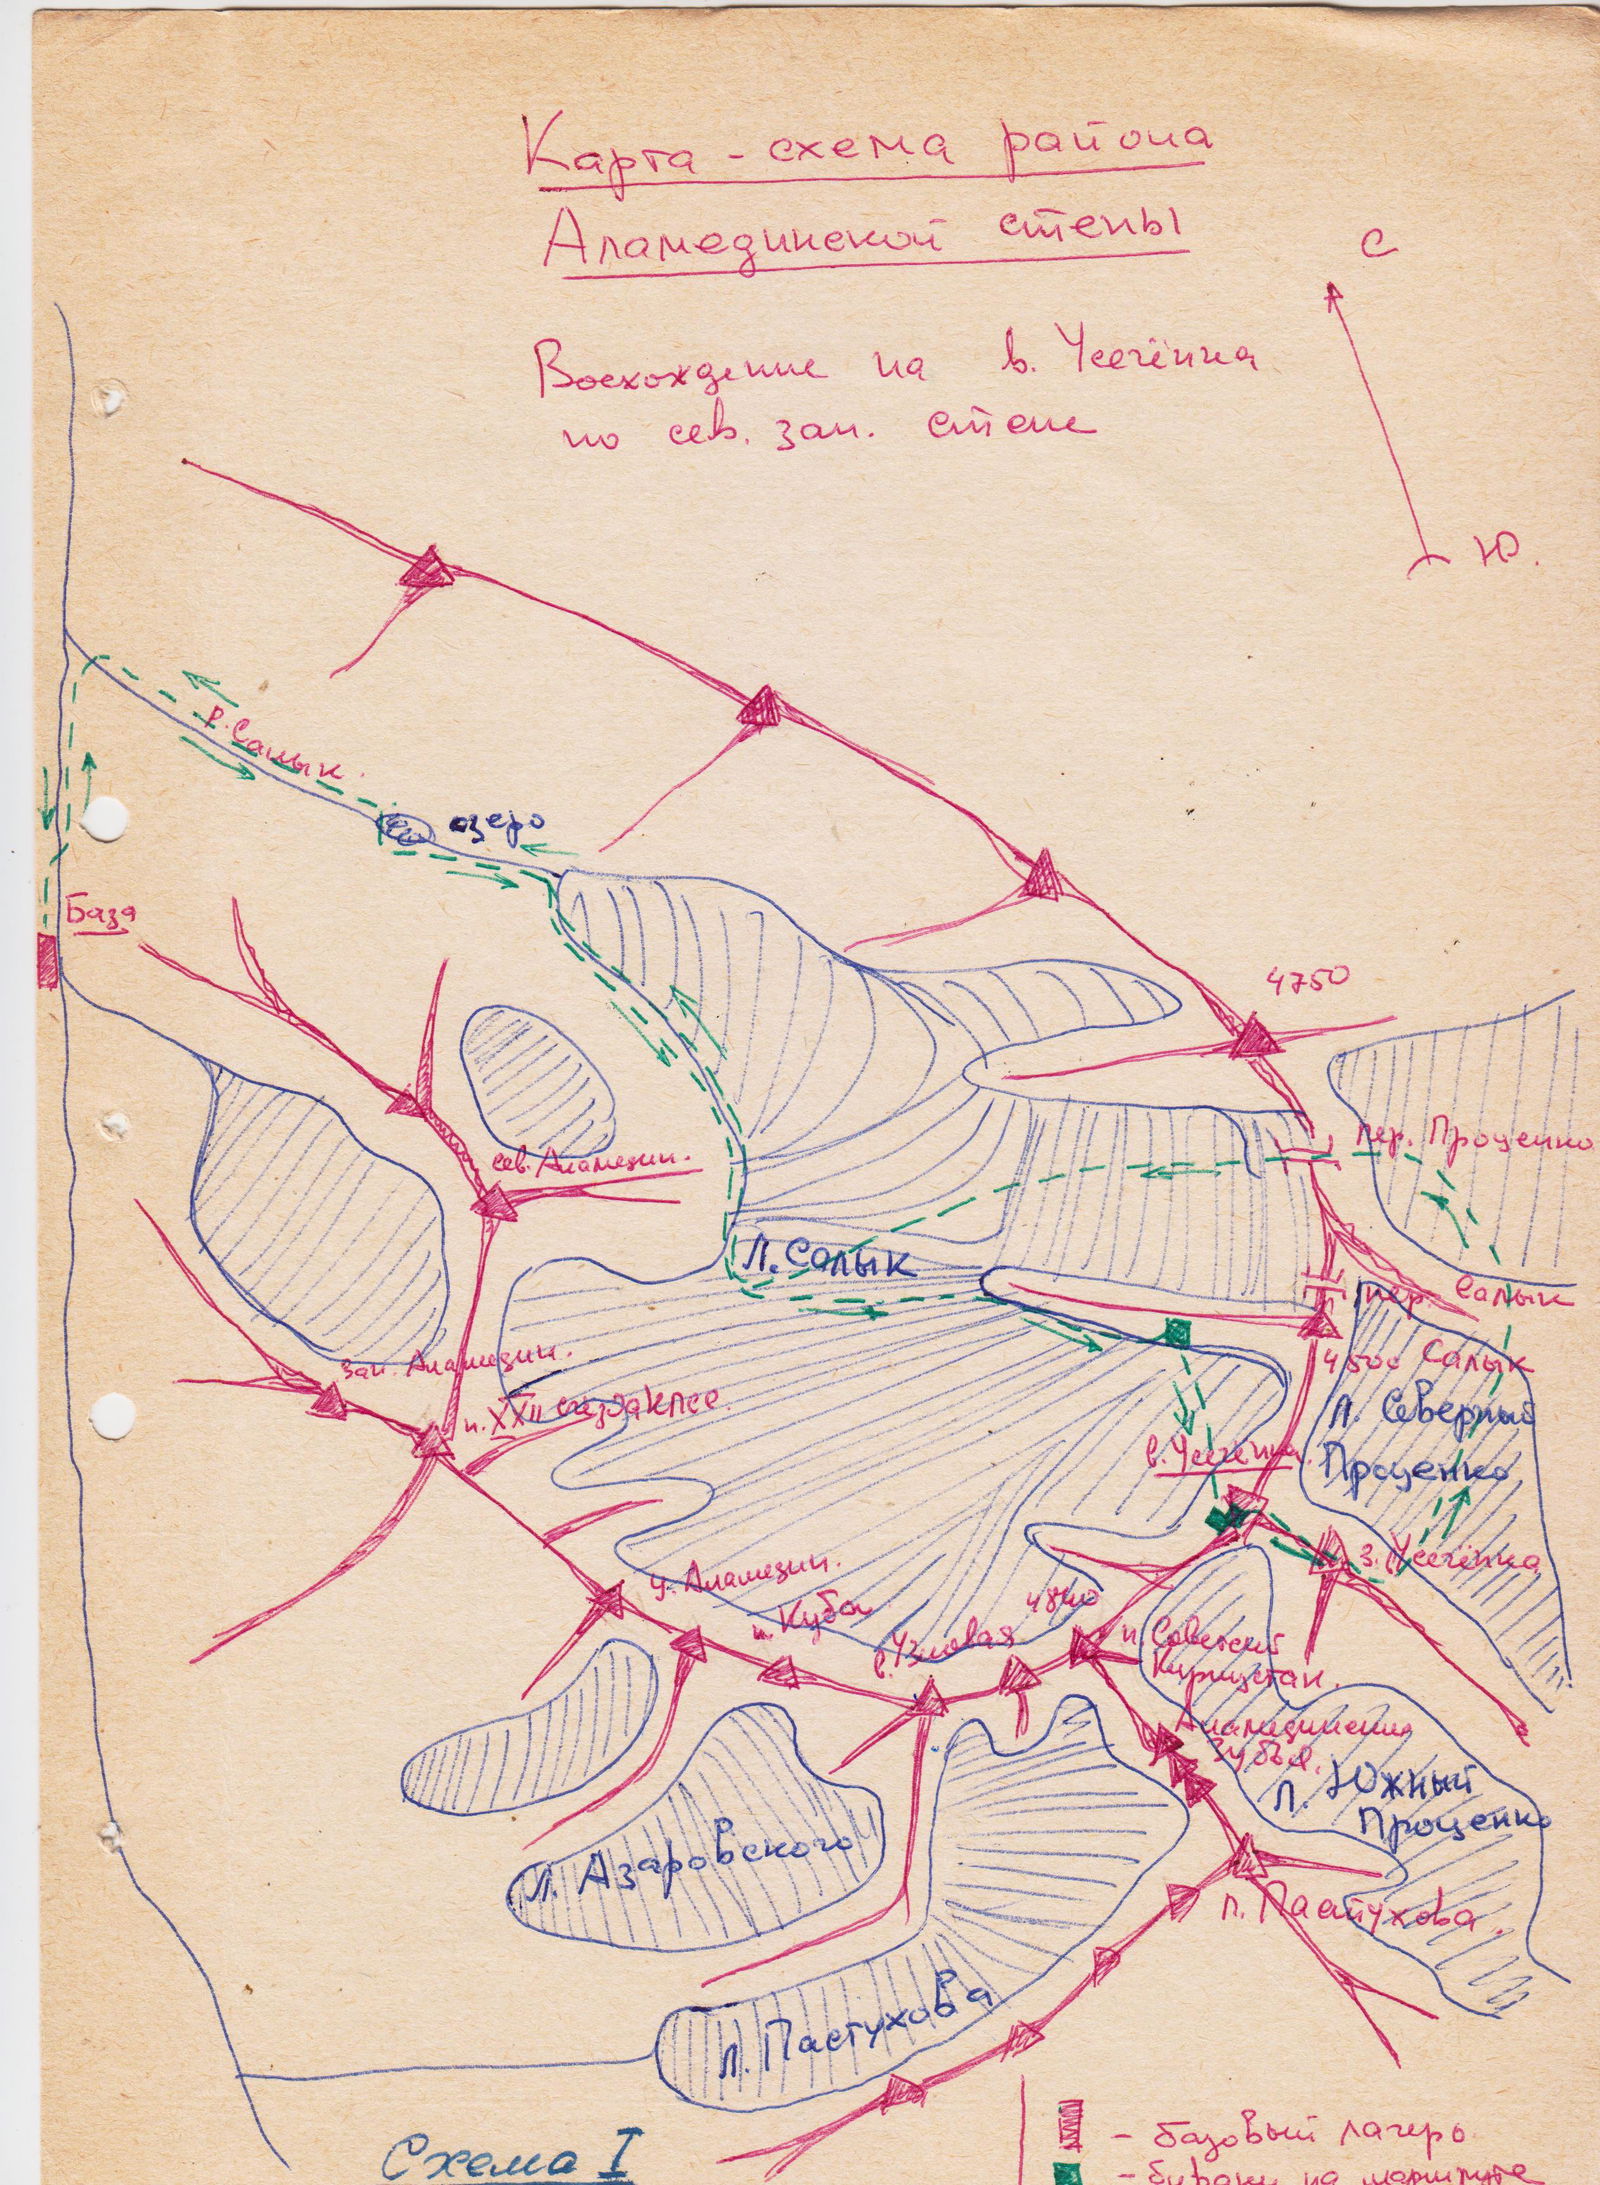 Карта-схема района
Аламединской стены
С
Восхождение на в. Усечённая
по сев. зап. стене
Ю.
р. Салык.
озеро
База
4750
пер. Проценко
сев. Аламедин.
Л. Салык
пер. Салык
зап. Аламедин.
4500 Салык
п. XXII съезда КПСС.
л. Северный
Проценко
в. Усечённая.
з. Усечённа
у. Аламедин.
4840
п. Кубы
в. Узловая
п. Советский
Киргизстан.
Аламединские
зубья.
л. Южный
Проценко
л. Азаровского
п. Пастухова.
л. Пастухова
Схема I
- базовый лагерь
- биваки на маршруте